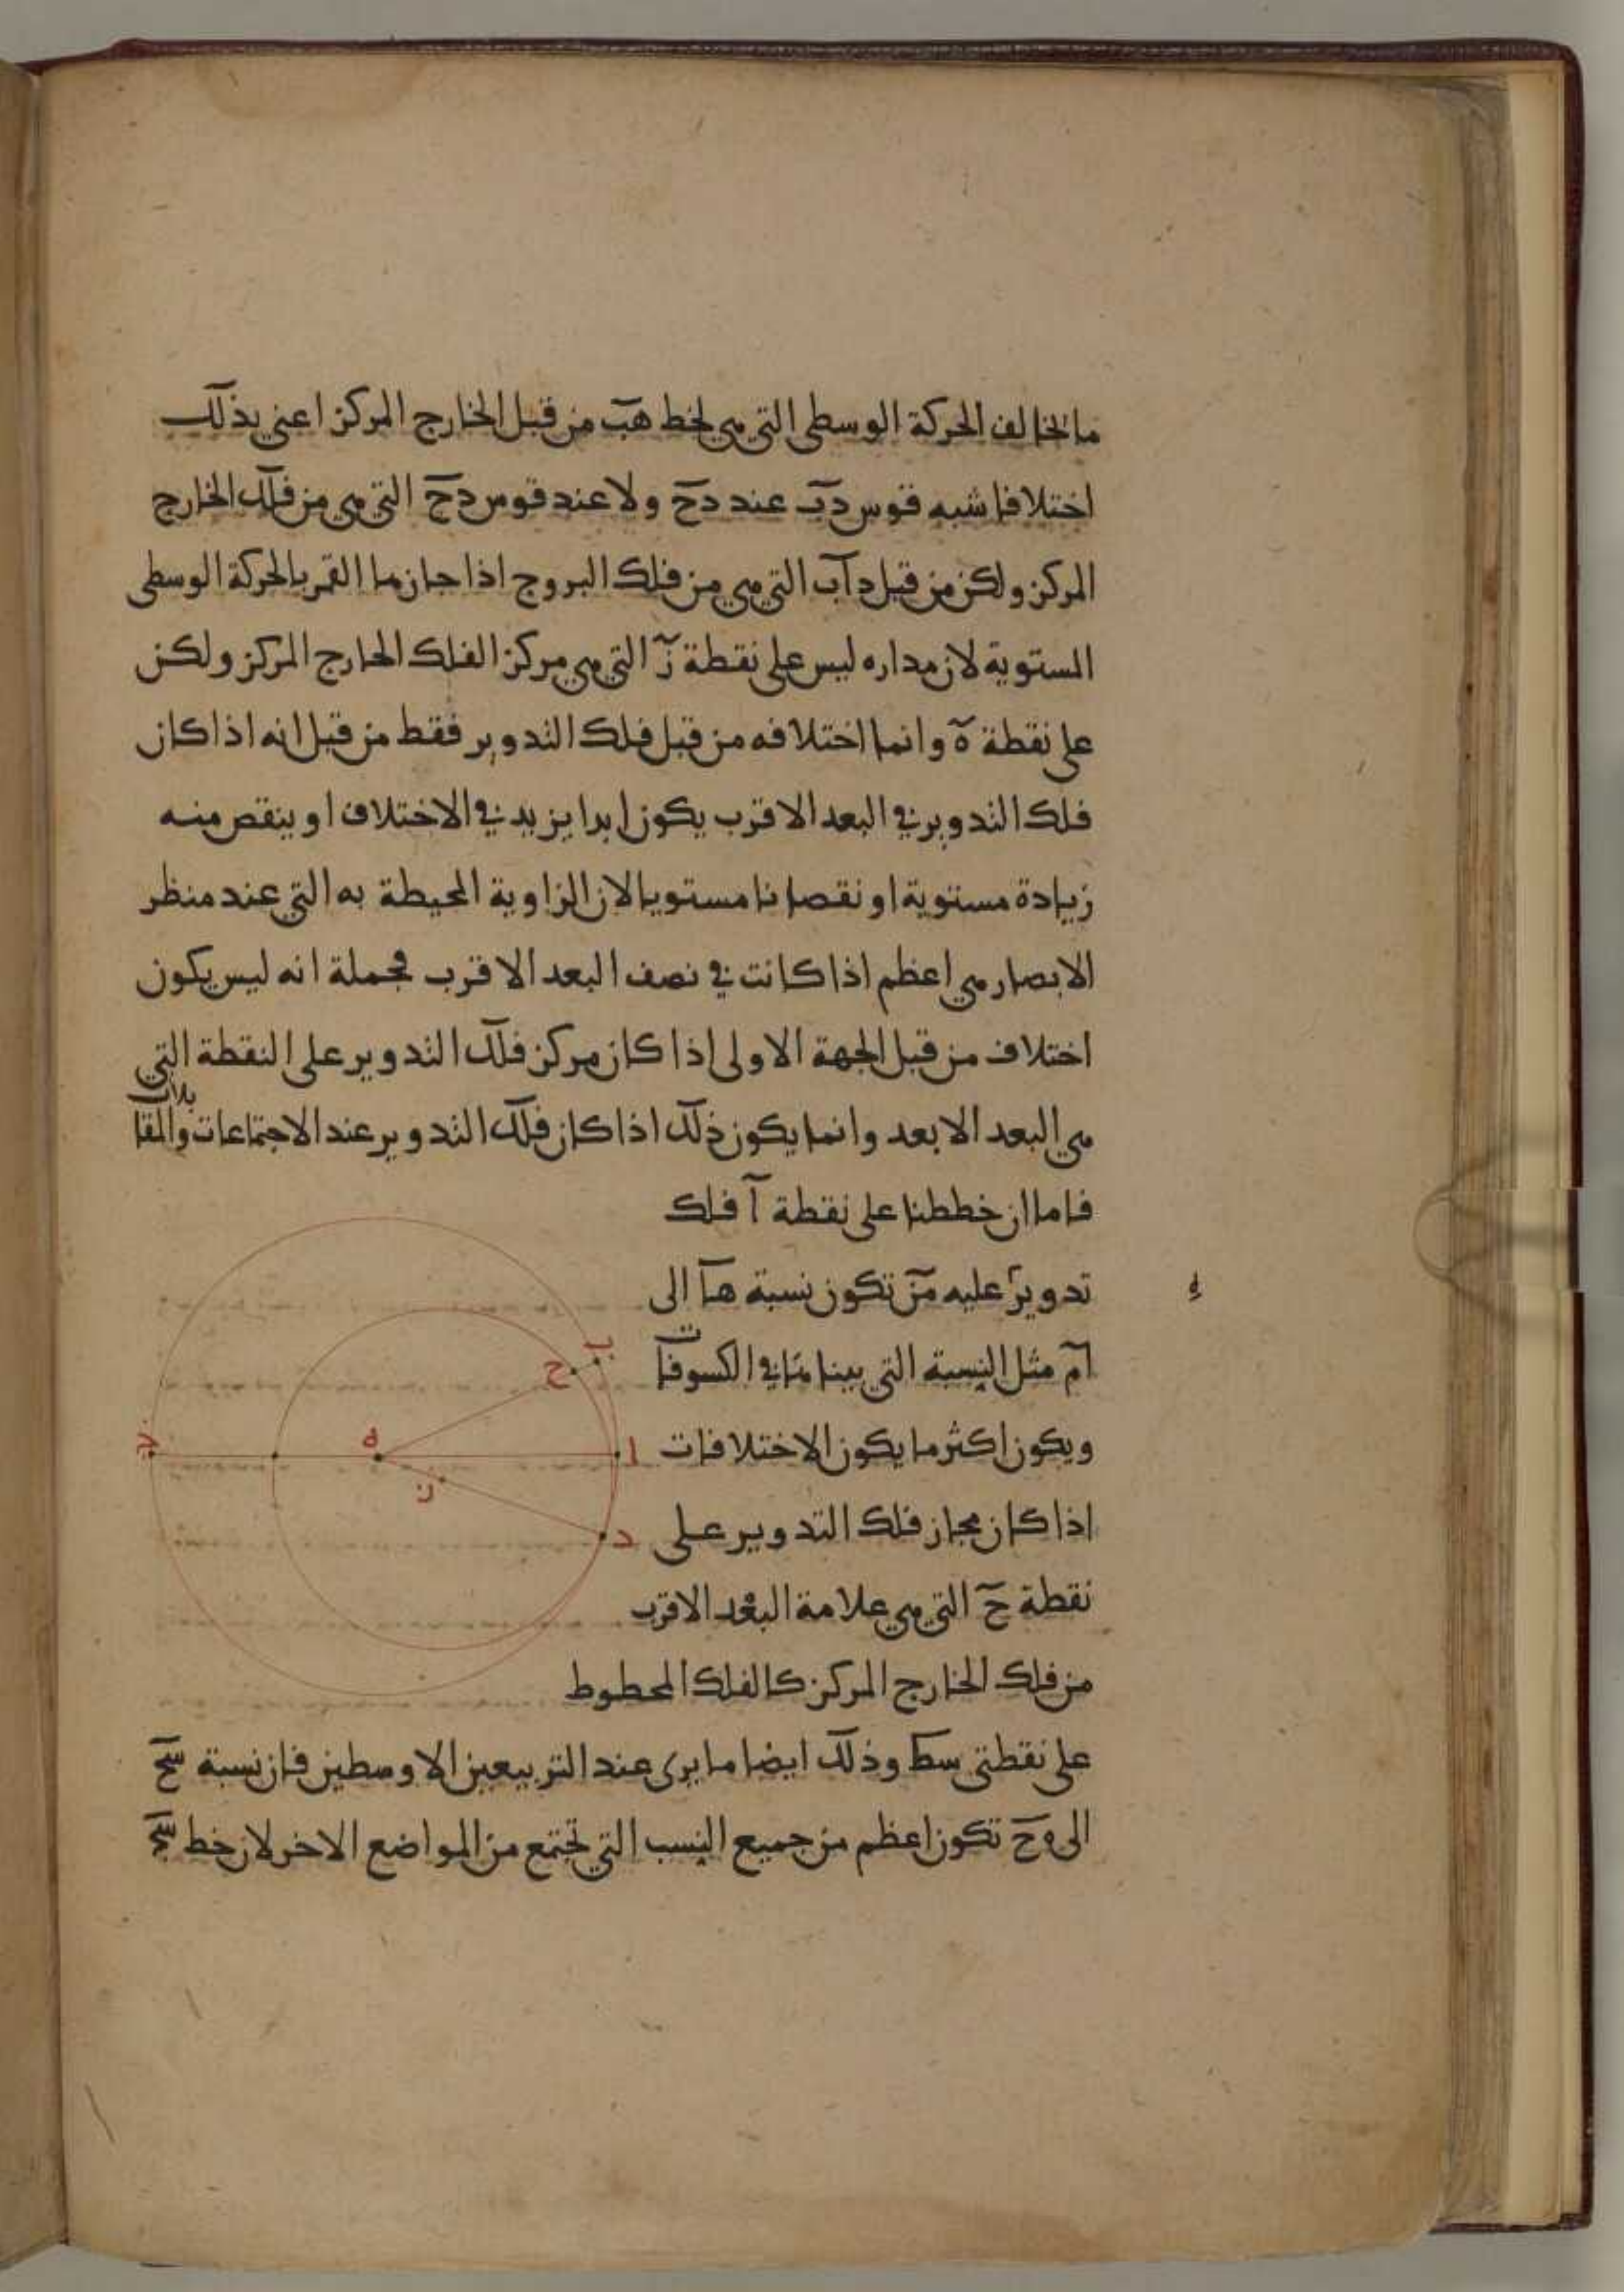 ما تخالف الحركة الوسطى التي هي لخط هب من قبل الخارج المركز اعني بذلك
اختلافا شبه قوس دب عند دح ولا عند قوس دح التي هي من فلك الخارج
المركز ولكن من قبل داب التي هي من فلك البروج اذا جازها القمر بالحركة الوسطى
المستوية لان مداره ليس على نقطة ز التي هي مركز الفلك الخارج المركز ولكن
على نقطة ه وانما اختلافه من قبل فلك التدوير فقط من قبل انه اذا كان
فلك التدوير في البعد الاقرب يكون ابدا يزيد في الاختلاف او ينقص منه
زيادة مستوية او نقصانا مستويا لان الزاوية المحيطة به التي عند منظر
الابصار هي اعظم اذا كانت في نصف البعد الاقرب فجملة انه ليس يكون
اختلاف من قبل الجهة الاولى اذا كان مركز فلك التدوير على النقطة التي
هي البعد الابعد وانما يكون ذلك اذا كان فلك التدوير عند الاجتماعات والمقا
بلات
فاما ان خططنا على نقطة ا فلك
تدوير عليه من تكون نسبة ها الى
ام مثل النسبة التي بينا ها في الكسوفات
ويكون اكثر ما يكون الاختلافات
اذا كان مجاز فلك التدوير على
نقطة ح التي هي علامة البعد الاقرب
من فلك الخارج المركز كالفلك المخطوط
على نقطتي سط وذلك ايضا ما يرى عند التربيعين الاوسطين فان نسبة سح
الى ه ح تكون اعظم من جميع النسب التي تجتمع من المواضع الاخر لان خط سح
ب
ح
ه
ا
ج
ز
د